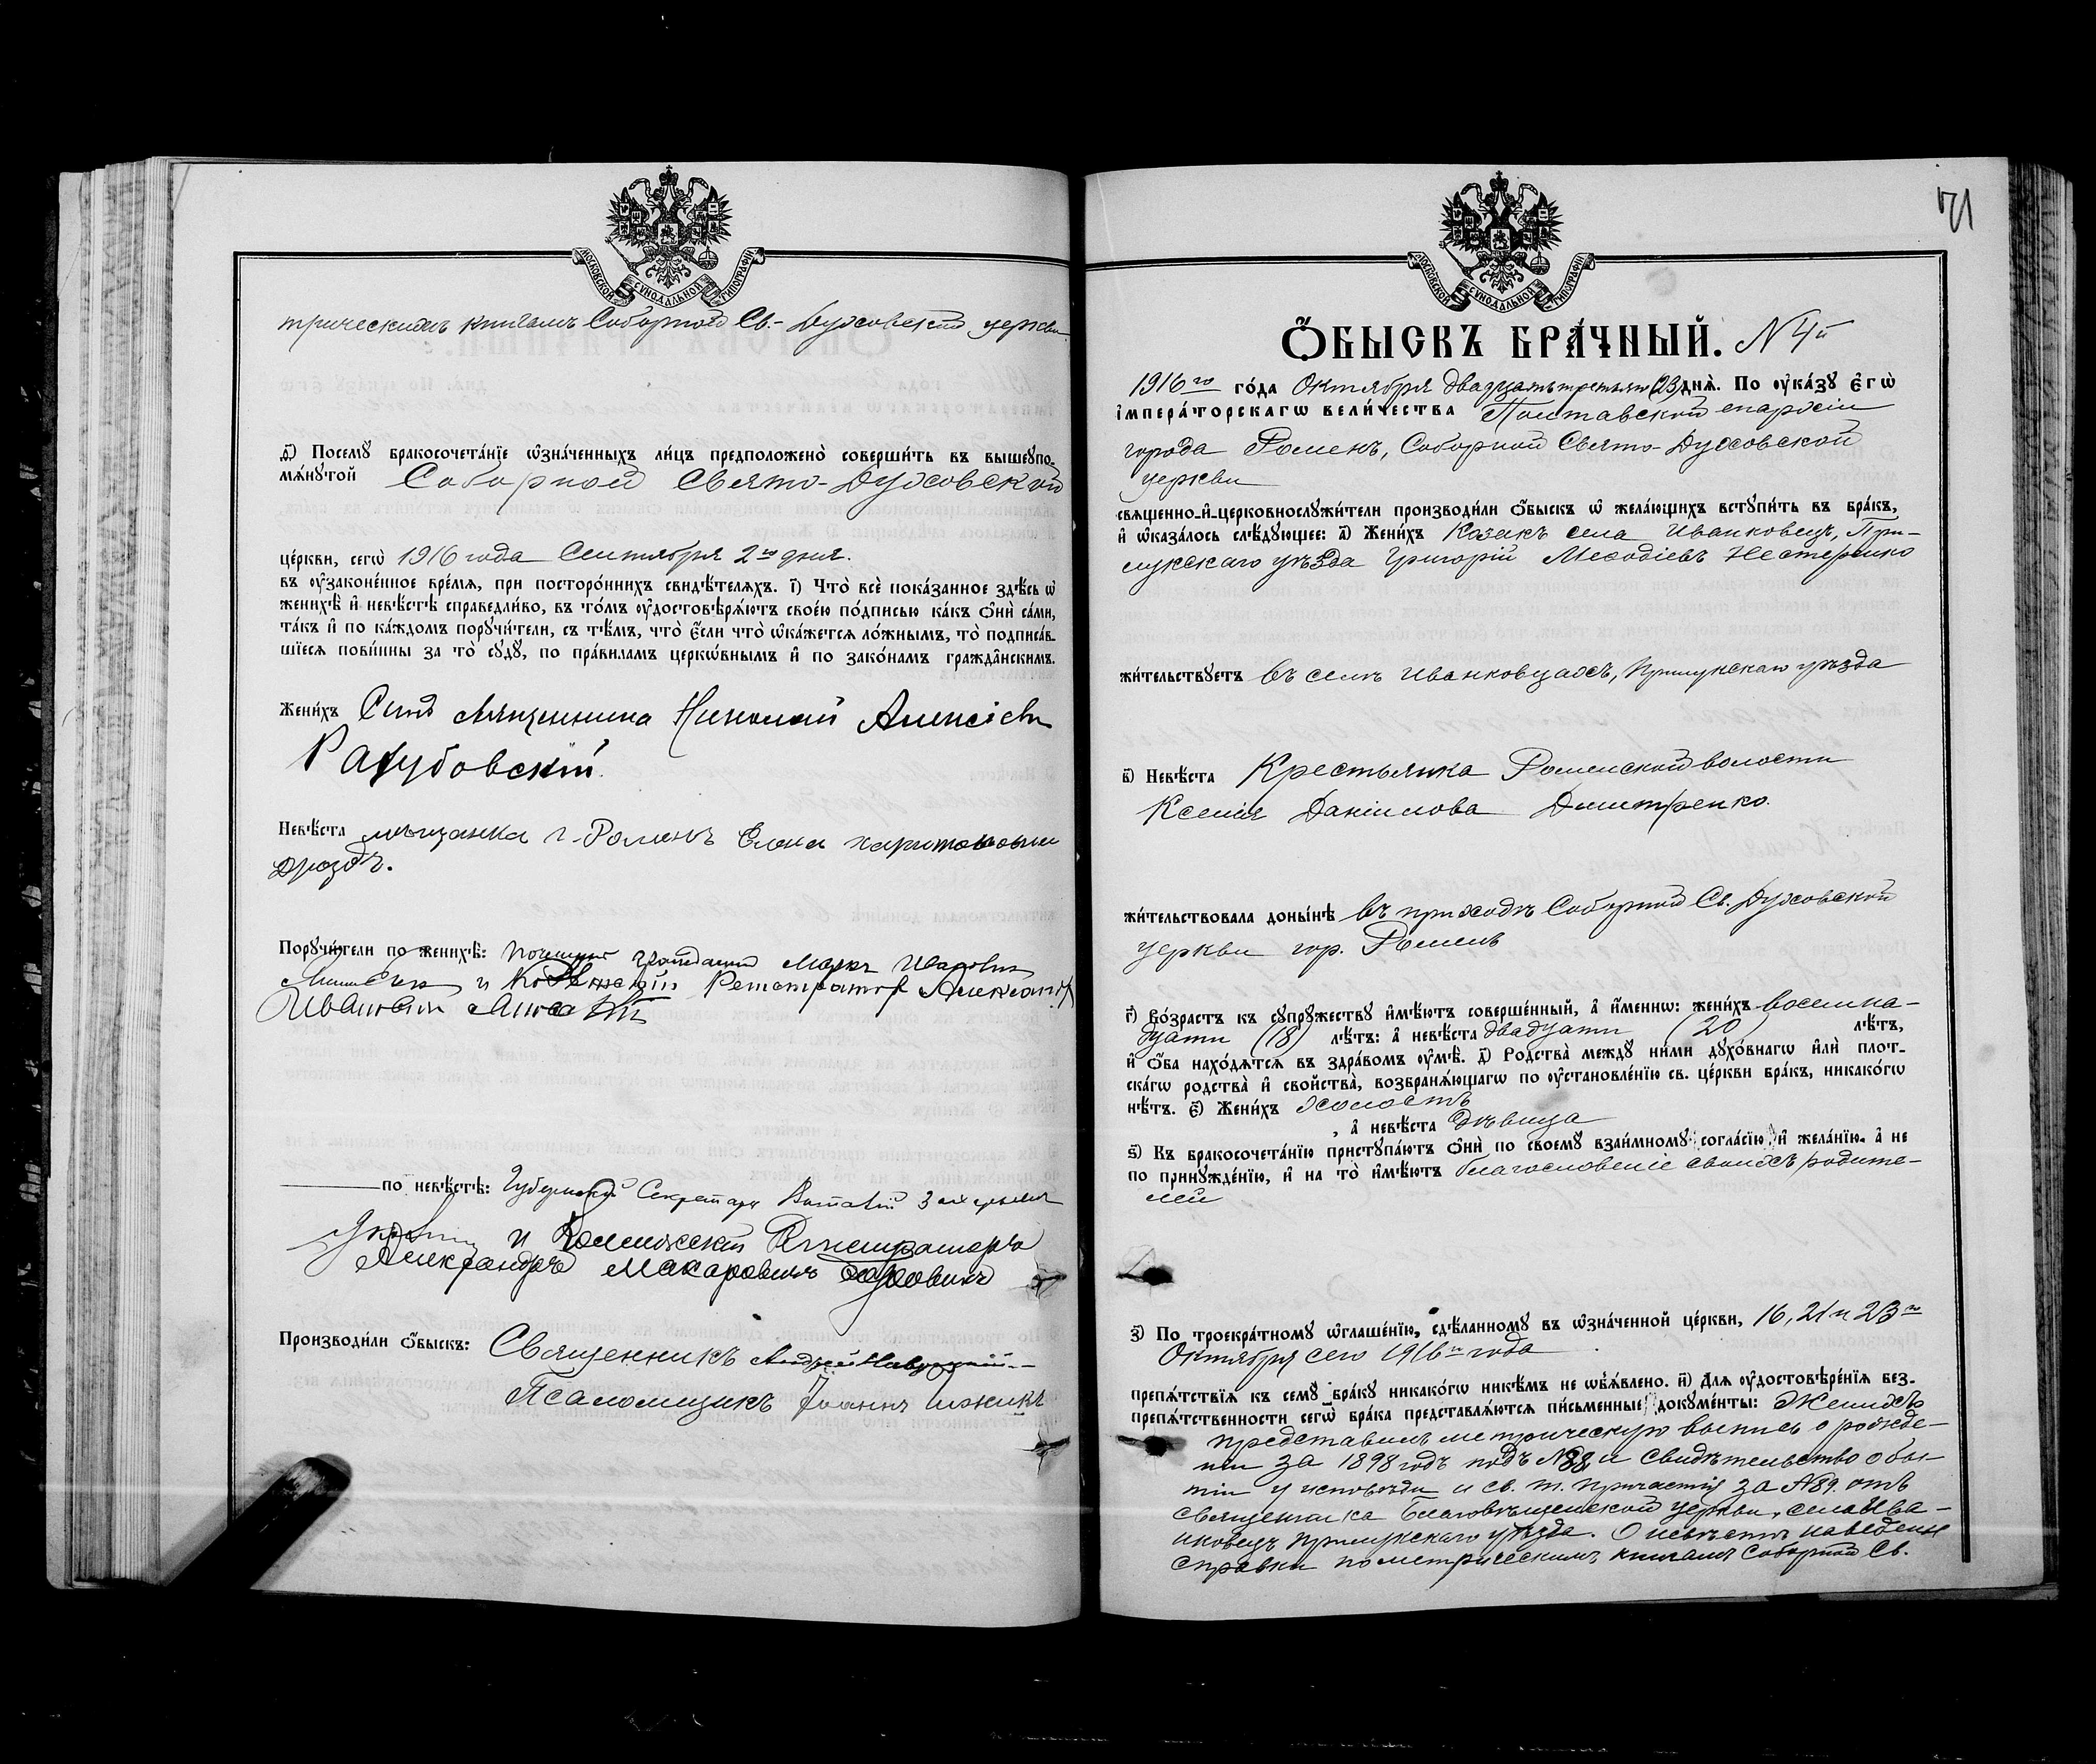 МОСКОВСКОЙ СѴНОДАЛЬНОЙ ТИПОГРАФІИ
трическимъ книгамъ Соборной Св.-Духовской церкви
д҃) Посемꙋ бракосочета́нїе ѡ҆зна́ченныхъ ли́цъ предположено̀ соверши́ть въ вышеꙋпо-
мѧ́нꙋтой Соборной Свято-Духовской
це́ркви, сегѡ̀ 1916 года Сентября 2го дня.
въ ᲂу҆законе́нное вре́мѧ, при посторо́ннихъ свидѣ́телѧхъ. і҃) Что̀ всѐ пока́занное здѣ́сь ѡ҆
женихѣ̀ и҆ невѣ́стѣ справедли́во, въ то́мъ ᲂу҆достовѣрѧ́ютъ свое́ю по́дписью ка́къ ѻ҆нѝ са́ми,
та́къ и҆ по ка́ждомъ порꙋчи́тели, съ тѣ́мъ, что̀ є҆́сли что̀ ѡ҆ка́жетсѧ ло́жнымъ, то̀ подписа́в-
шїесѧ пови́нны за то̀ сꙋдꙋ̀, по пра́виламъ церко́внымъ и҆ по зако́намъ гражда́нскимъ.
Жени́хъ Сынъ священника Николай Алексіевъ
Рафубовскій
Невѣ́ста мѣщанка г. Роменъ Елена Харитоновна
Дроздъ.
Порꙋчи́тели по женихѣ̀: гражданинъ Маркъ Ивановичъ
и Коллежскій Регистраторъ Александръ
Ивановичъ
по невѣ́стѣ: Губернскій Секретарь Виталій
и Коллежскій Регистраторъ
Александръ Макаровичъ
Производи́ли ѻ҆́быскъ: Священникъ Андрей Навроцкій
Псаломщикъ Іоаннъ Ижикъ
71
МОСКОВСКОЙ СѴНОДАЛЬНОЙ ТИПОГРАФІИ
Ѻ҆́БЫСКЪ БРА́ЧНЫЙ. N 4й
1916го го́да Октября двадцать третьяго (23) днѧ̀. По ᲂу҆ка́зꙋ є҆гѡ̀
і҆мпера́торскагѡ вели́чества Полтавской епархіи
города Роменъ, Соборной Свято-Духовской
церкви
свѧщенно-и҆-церковнослꙋжи́тели производи́ли ѻ҆́быскъ ѡ҆ жела́ющихъ встꙋпи́ть въ бра́къ,
и҆ ѡ҆каза́лось слѣ́дꙋющее: а҃) Жени́хъ Козакъ села Иванковецъ, При-
лукскаго уѣзда Григорій Меѳодіевъ Нестеренко
жи́тельствꙋетъ въ селѣ Иванковцахъ, Прилукскаго уѣзда
в҃) Невѣ́ста Крестьянка Роменской волости
Ксенія Даніилова Дмитренко.
жи́тельствовала доны́нѣ въ приходѣ Соборной Св. Духовской
церкви гор. Роменъ
г҃) Во́зрастъ къ сꙋпрꙋ́жествꙋ и҆мѣ́ютъ соверше́нный, а҆ и҆́меннѡ: жени́хъ восемна-
дцати (18) лѣ́тъ: а҆ невѣ́ста двадцати (20) лѣ́тъ,
и҆ ѻ҆́ба нахо́дѧтсѧ въ здра́вомъ ᲂу҆мѣ̀. д҃) Родства̀ междꙋ̀ ни́ми дꙋхо́внагѡ и҆лѝ плот-
ска́гѡ родства̀ и҆ свойства̀, возбранѧ́ющагѡ по ᲂу҆становле́нїю св. це́ркви бра́къ, никако́гѡ
нѣ́тъ. є҃) Жени́хъ холостъ
, а҆ невѣ́ста дѣвица
ѕ҃) Къ бракосочета́нїю пристꙋпа́ютъ ѻ҆нѝ по своемꙋ̀ взаи́мномꙋ согла́сїю и҆ жела́нїю. а҆ не
по принꙋжде́нїю, и҆ на то̀ и҆мѣ́ютъ благословеніе своихъ родите-
лей
з҃) По троекра́тномꙋ ѡ҆глаше́нїю, сдѣ́ланномꙋ въ ѡ҆зна́ченной це́ркви, 16, 21 и 23го
Октября сего 1916го года
препѧ́тствїѧ къ семꙋ̀ бра́кꙋ никако́гѡ никѣ́мъ не ѡ҆б̾ѧ́влено. и҃) Длѧ ᲂу҆достовѣре́нїѧ без-
препѧ́тственности сегѡ̀ бра́ка представлѧ́ютсѧ пи́сьменные докꙋме́нты: Женихъ
представилъ метрическую выпись о рожде-
ніи за 1898 годъ подъ № 88 и свидѣтельство о бы-
тіи у исповѣди и св. т. Причастія за № 89. отъ
священника Благовѣщенской церкви, села Ива-
нковецъ Прилукскаго уѣзда. О невѣстѣ наведены
справки по метрическимъ книгамъ Соборной Св.